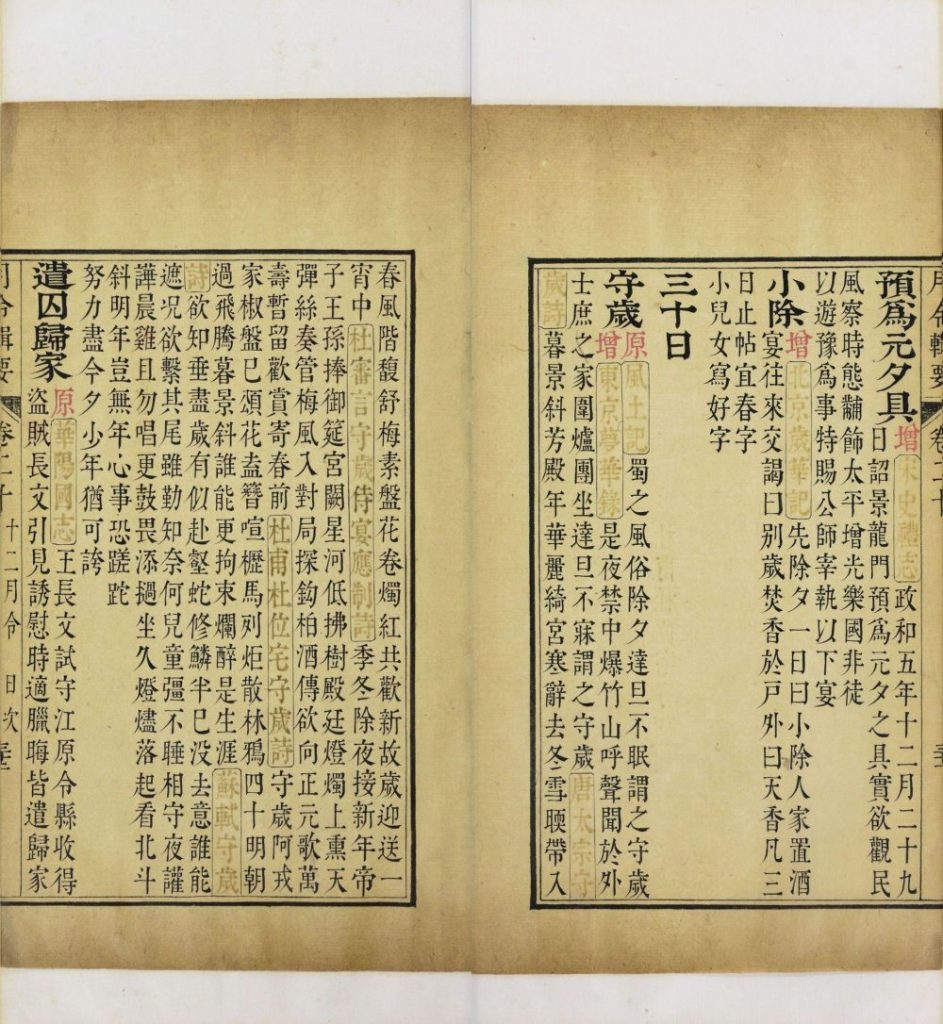 月令輯要
卷二十
預爲元夕具 增宋史禮志政和五年十二月二十九
日詔景龍門預爲元夕之具實欲觀民
風察時態黼飾太平增光樂國非徒
以遊豫爲事特賜公師宰執以下宴
小除 增北京歲華記先除夕一日曰小除人家置酒
宴往來交謁曰別歲焚香於戶外曰天香凡三
日止帖宜春字
小兒女寫好字
三十日
守歲 原風土記蜀之風俗除夕達旦不眠謂之守歲
增東京夢華錄是夜禁中爆竹山呼聲聞於外
士庶之家圍爐團坐達旦不寐謂之守歲唐太宗守
歲詩暮景斜芳殿年華麗綺宮寒辭去冬雪㬉帶入
春風階馥舒梅素盤花卷燭紅共歡新故歲迎送一
宵中杜審言守歲侍宴應制詩季冬除夜接新年帝
子王孫捧御筵宮闕星河低拂樹殿廷燈燭上熏天
彈絲奏管梅風入對局探鉤柏酒傳欲向正元歌萬
壽暫留歡賞寄春前杜甫杜位宅守歲詩守歲阿戎
家椒盤已頌花盍簪喧櫪馬列炬散林鴉四十明朝
過飛騰暮景斜誰能更拘束爛醉是生涯蘇軾守歲
詩欲知垂盡歲有似赴壑蛇修鱗半已沒去意誰能
遮況欲繫其尾雖勤知奈何兒童彊不睡相守夜讙
譁晨雞且勿唱更鼓畏添撾坐久燈燼落起看北斗
斜明年豈無年心事恐蹉跎
努力盡今夕少年猶可誇
遣囚歸家 原華陽國志王長文試守江原令縣收得
盜賊長文引見誘慰時適臘晦皆遣歸家
月令輯要 卷二十 十二月令 日次